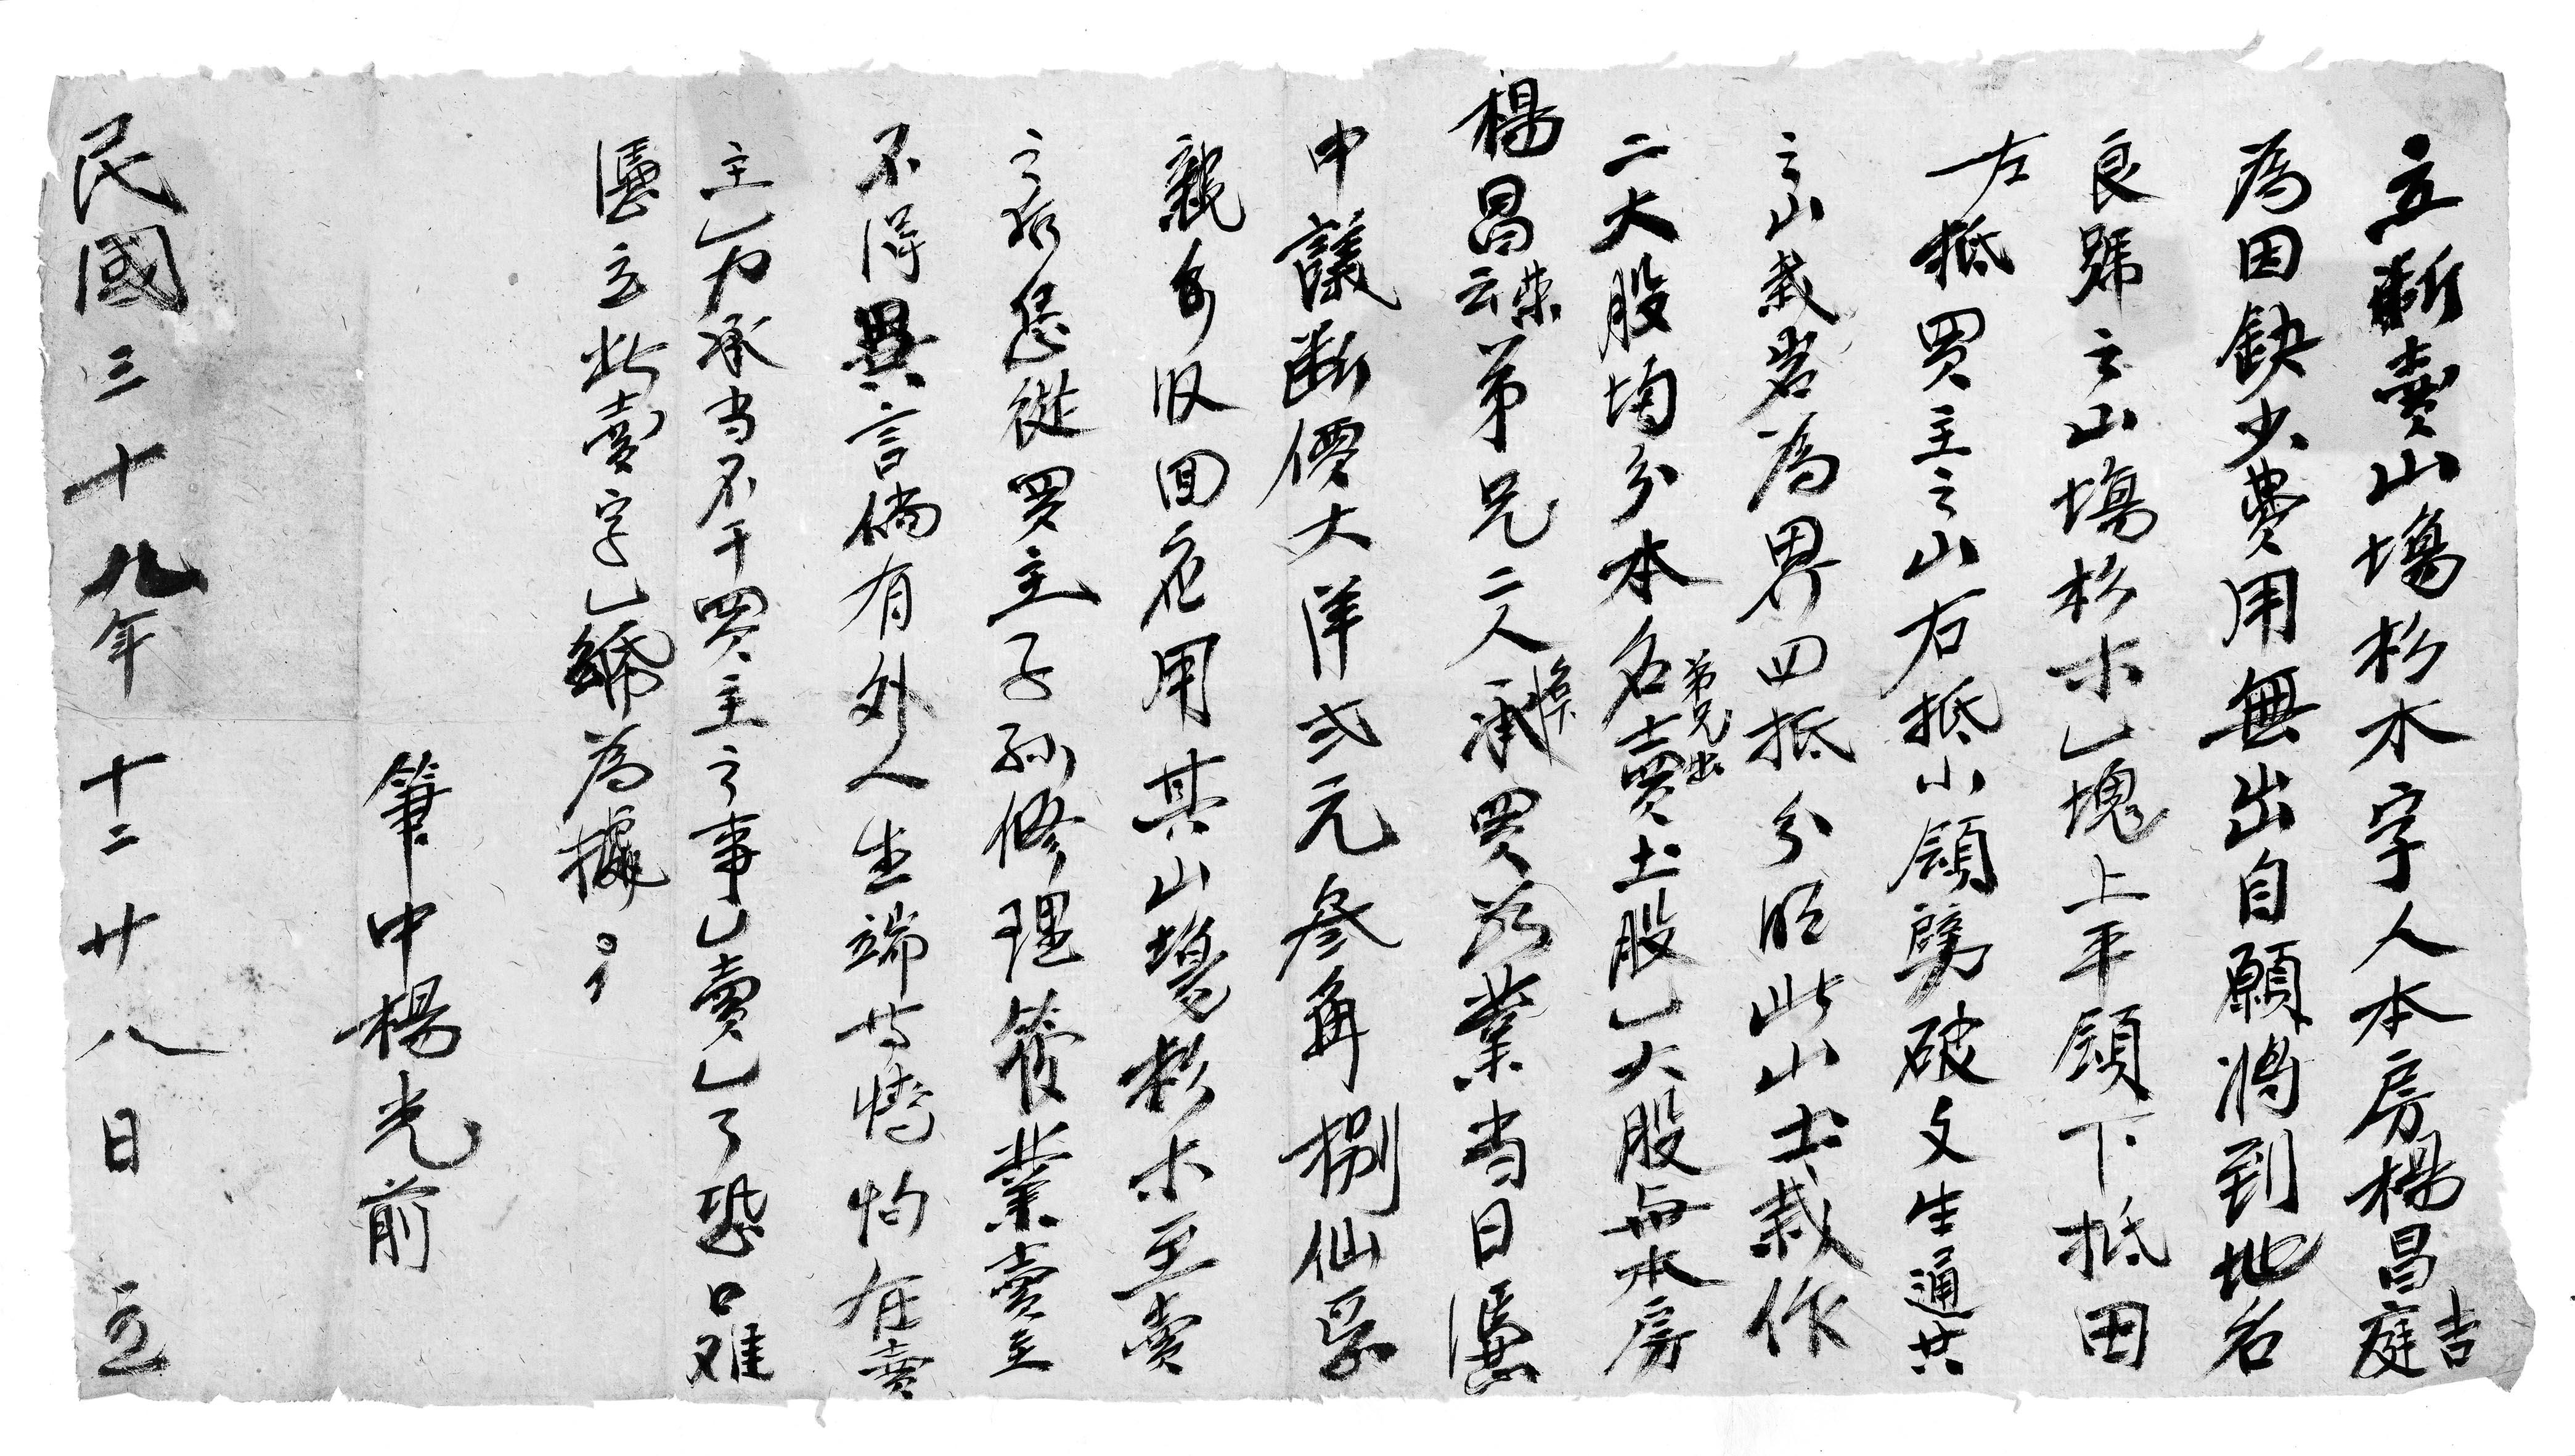 立斷賣山塲杉木字人本房楊昌庭吉
為因缺少費用無出自願將到地名
良號之山塲杉木乚塊上平領下抵田
左抵買主之山右抵小領劈破文生通共
之山栽岩為界四抵分明此山土栽作
二大股均分本名弟兄出賣土股乚大股與本房
楊昌云榮弟兄二人承買為業当日憑
中議斷價大洋弍元叁角捌仙孚
親手收回应用其山塲杉木至賣
之后恁從買主子孫修理管業賣主
不得異言倘有外人生端其情均在賣
主乚力承当不干買主之事乚賣乚了恐口难
憑立此賣字乚紙為據
筆中楊光前
民國三十九年十二廿八日立